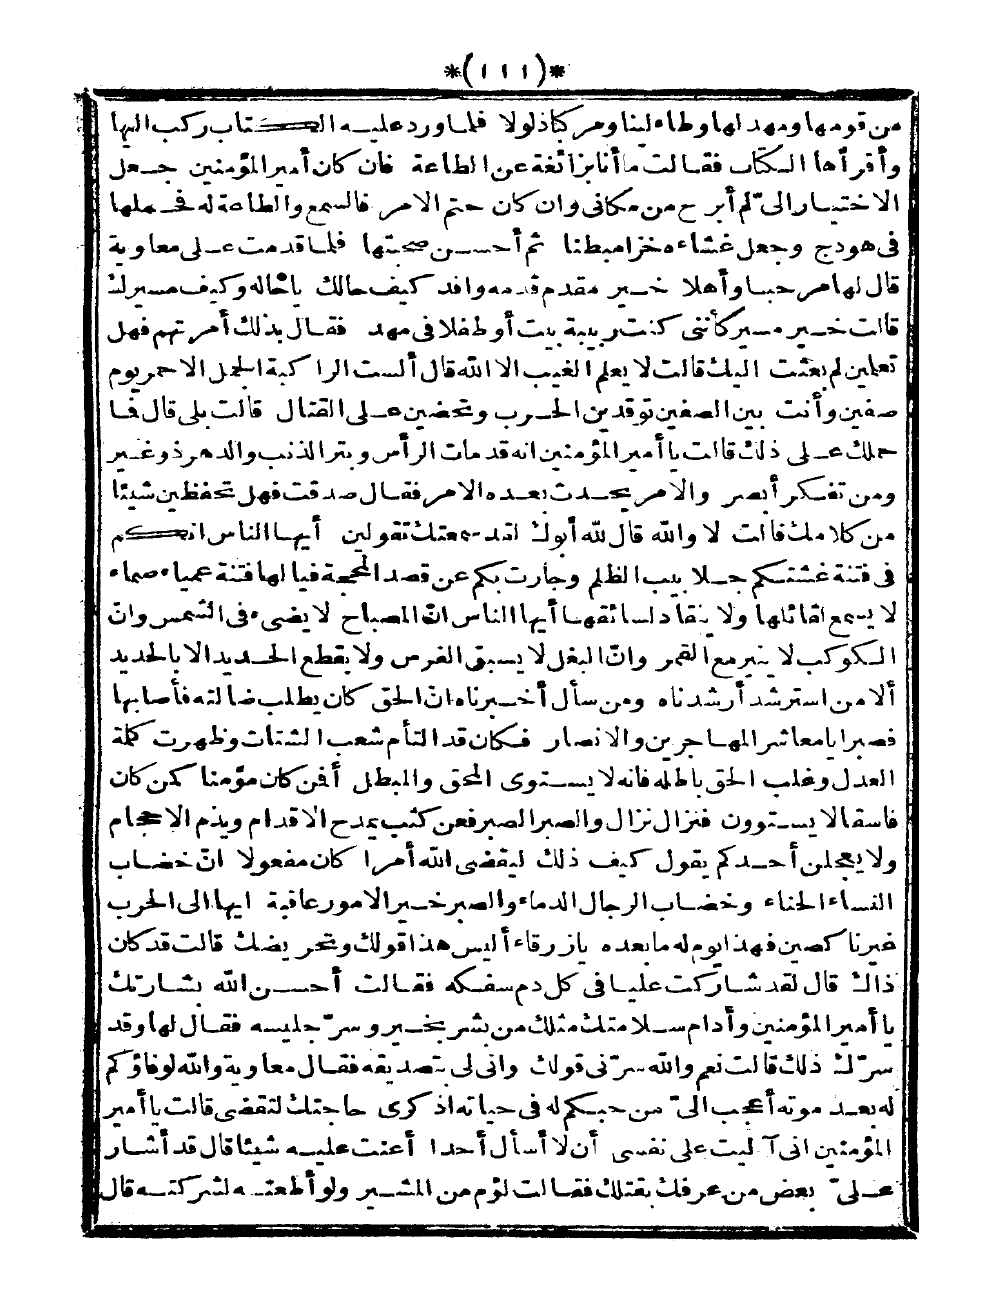 *(١١١)*
من قومها ومهد لها وطاء لينا ومركبا ذلولا فلما ورد عليه الكتاب ركب اليها
وأقرأها الكتاب فقالت ما أنا بزائغة عن الطاعة فان كان أمير المؤمنين جعل
الاختيار الىّ لم أبرح من مكانى وان كان حتم الامر فالسمع والطاعة له فحملها
فى هودج وجعل غشاءه خزا مبطنا ثم أحسن صحبتها فلما قدمت على معاوية
قال لها مرحبا وأهلا خير مقدم قدمه وافد كيف حالك ياخاله وكيف مسيرك
قالت خير مسير كأننى كنت ربيبة بيت أو طفلا فى مهد فقال بذلك أمرتهم فهل
تعلمين لم بعثت اليك قالت لا يعلم الغيب الا الله قال ألست الراكبة الجمل الاحمر يوم
صفين وأنت بين الصفين توقدين الحرب وتحضين على القتال قالت بلى قال فما
حملك على ذلك قالت يا أمير المؤمنين انه قد مات الرأس وبتر الذنب والدهر ذو غير
ومن تفكر أبصر والامر يحدث بعده الامر فقال صدقت فهل تحفظين شيئا
من كلامك قالت لا والله قال لله أبوك لقد سمعتك تقولين أيها الناس انكم
فى فتنة غشتكم جلابيب الظلم وجارت بكم عن قصد المحجة فيا لها فتنة عمياء صماء
لا يسمع لقائلها ولا ينقاد لسائقها أيها الناس انّ المصباح لا يضىء فى الشمس وانّ
الكوكب لا ينير مع القمر وانّ البغل لا يسبق الفرس ولا يقطع الحديد الا بالحديد
ألا من استرشد أرشدناه ومن سأل أخبرناه انّ الحق كان يطلب ضالته فأصابها
فصبرا يا معاشر المهاجرين والانصار فكان قد التأم شعب الشتات وظهرت كلمة
العدل وغلب الحق باطله فانه لا يستوى المحق والمبطل أفمن كان مؤمنا كمن كان
فاسقا لا يستوون فنزال نزال والصبر الصبر فعن كثب يمدح الاقدام ويذم الاحجام
ولا يعجلن أحدكم يقول كيف ذلك ليقضى الله أمرا كان مفعولا انّ خضاب
النساء الحناء وخضاب الرجال الدماء والصبر خير الامور عاقبة ايها الى الحرب
غير ناكصين فهذا يوم له ما بعده يازرقاء أليس هذا قولك وتحريضك قالت قد كان
ذاك قال لقد شاركت عليا فى كل دم سفكه فقالت أحسن الله بشارتك
يا أمير المؤمنين وأدام سلامتك مثلك من بشر بخير وسرّ جليسه فقال لها وقد
سرّك ذلك قالت نعم والله سرّنى قولك وانى لى بتصديقه فقال معاوية والله لوفاؤكم
له بعد موته أعجب الىّ من حبكم له فى حياته اذكرى حاجتك لتقضى قالت يا أمير
المؤمنين انى آليت على نفسى أن لا أسأل أحدا أعنت عليه شيئا قال قد أشار
علىّ بعض من عرفك بقتلك فقالت لؤم من المشير ولو أطعته لشركته قال